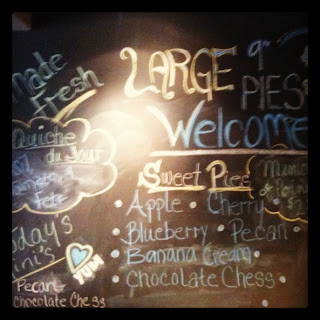 Made
Fresh
Quiche
du Jour
Tomato &
Feta
Today's
Mini's
YUM
Pecan
Chocolate Chess
LARGE
9"
PIES
Welcome
Sweet Pies
• Apple • Cherry •
• Blueberry • Pecan •
• Banana Cream •
• Chocolate Chess